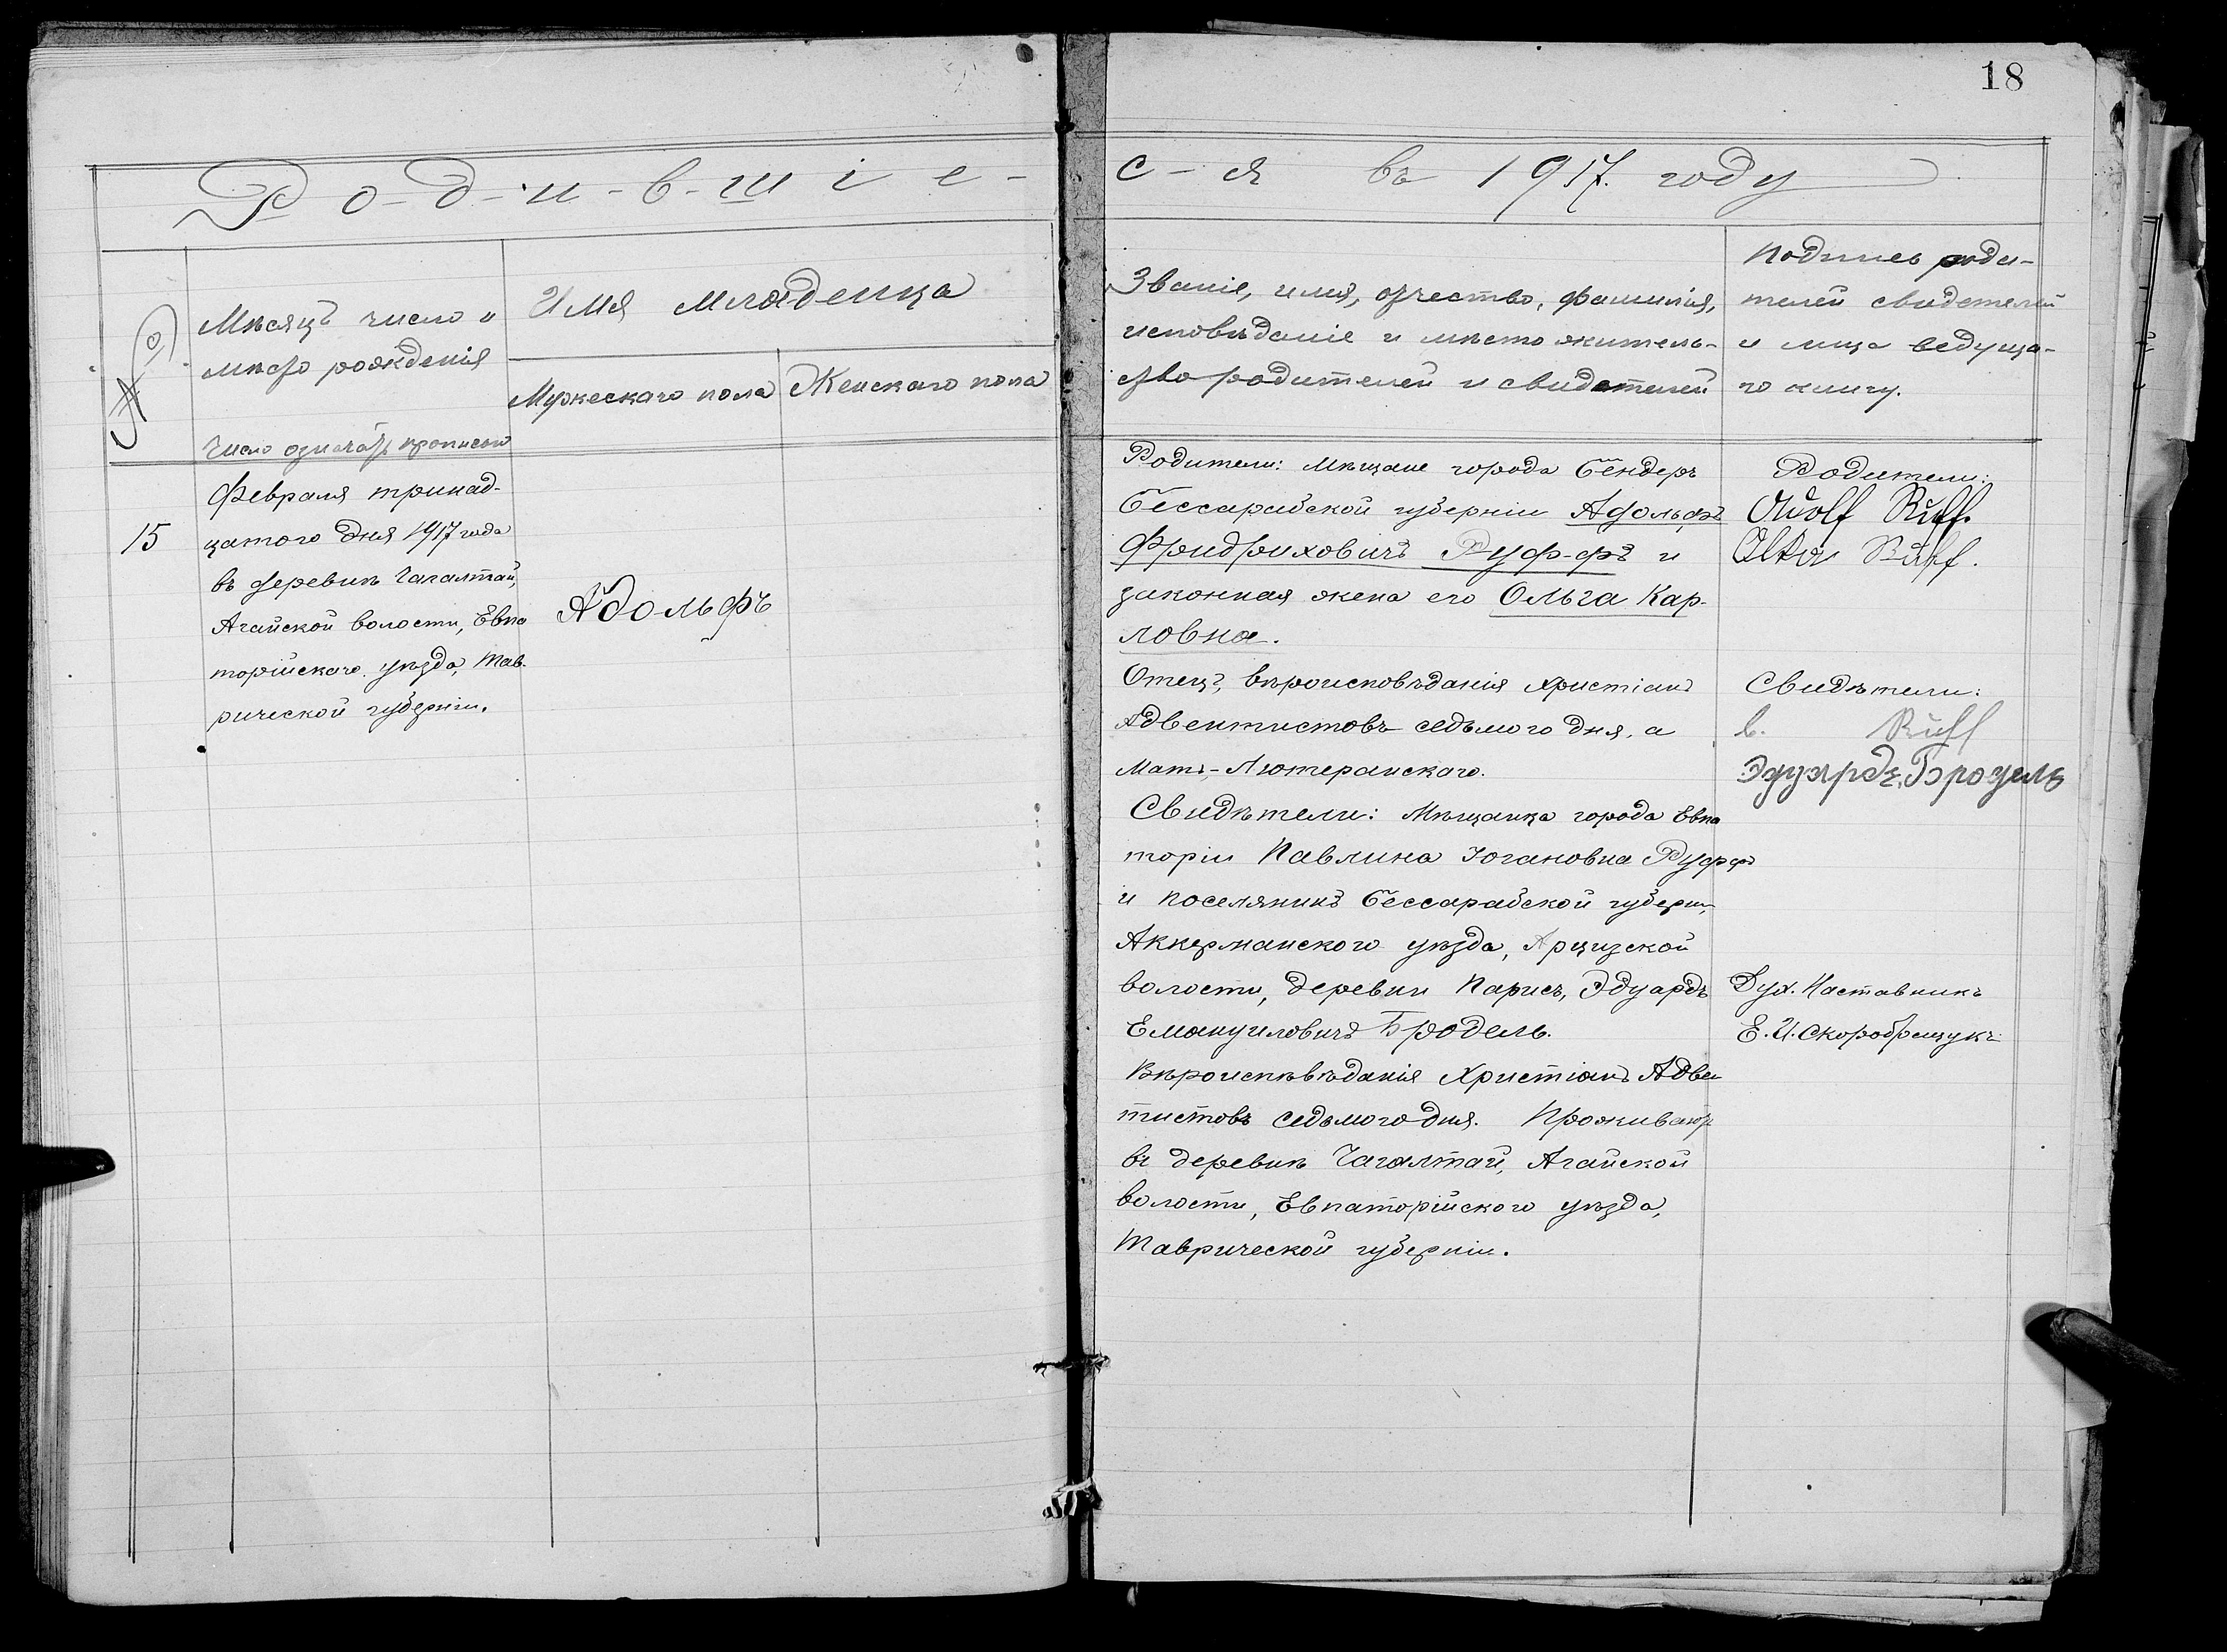 18
Р-о-д-и-в-ш і е-
с-я въ 1917. году
№
Мѣсяцъ число и
мѣсто рожденія
Число означать прописью
Имя младенца
Мужескаго пола
Женскаго пола
Званіе, имя, отчество, фамилія,
исповѣданіе и мѣсто житель-
ство родителей и свидетелей
Подпись роди-
телей свидетелей
и лица ведуща-
го книгу.
15
Февраля тринад-
цатого дня 1917 года
въ деревнѣ Чагалтай,
Агайской волости, Евпа
торійскаго уѣзда, Тав-
рической губерніи.
Адольфъ
Родители: Мѣщане города Бендеръ
Бессарабской губерніи Адольфъ
Фридриховичъ Руф-фъ и
законная жена его Ольга Кар-
ловна.
Отецъ, вѣроисповѣданія Христіанъ
Адвентистовъ седьмого дня, а
Мать-Лютеранскаго.
Свидѣтели: Мѣщанка города Евпа
торіи Павлина Іогановна Руффъ
и поселянинъ Бессарабской губерніи,
Аккерманского уѣзда, Арцизской
волости, деревни Парисъ, Эдуардъ
Емануиловичъ Бродель.
Вѣроиспѣвѣданія Христіанъ Адвен
тистовъ седьмого дня. Проживаютъ
въ деревнѣ Чагалтай, Агайской
волости, Евпаторійского уѣзда,
Таврической губерніи.
Родители:
Adolf Rŭff.
Olga Rŭff.
Свидѣтели:
Rŭff
Эдуардъ Бродель
Дух. Наставникъ
Е. И. Скоробрещукъ